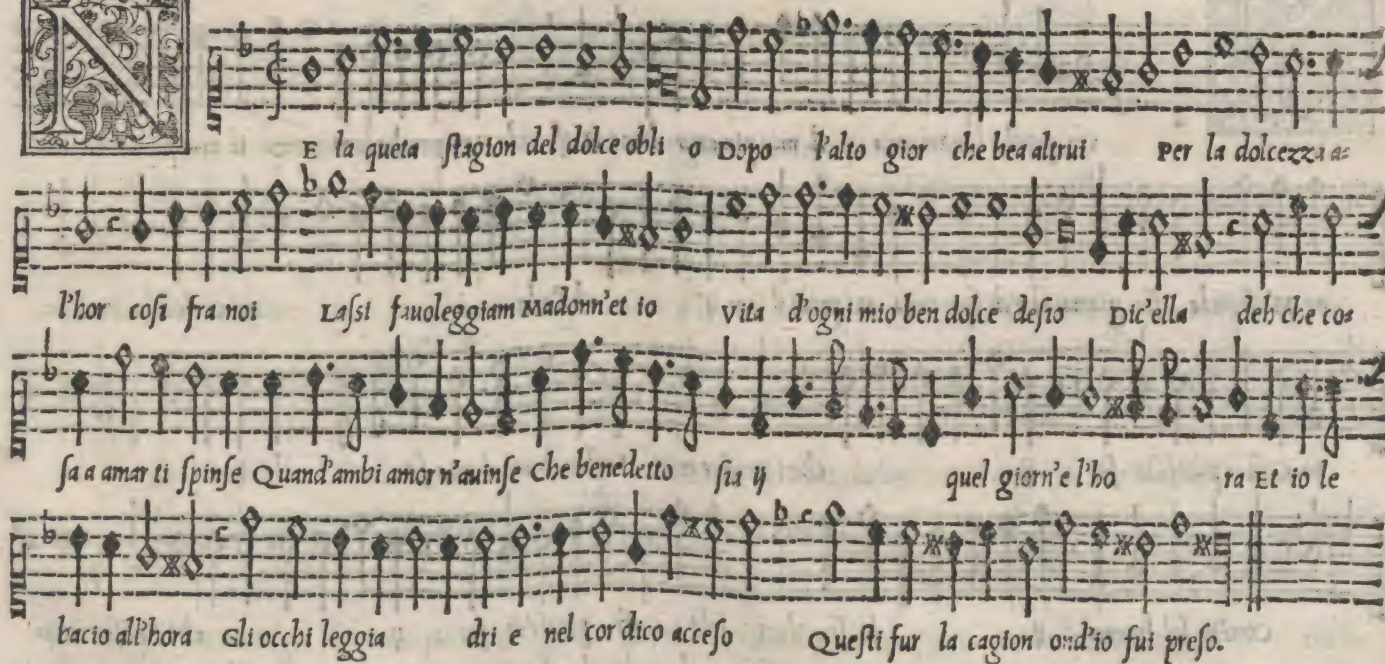 N
E la queta ſtagion del dolce obli o Dopo l'alto gior che bea altrui Per la dolcezza a=
l'hor coſi fra noi Laſsi fauoleggiam Madonn'et io Vita d'ogni mio ben dolce deſio Dic'ella deh che co=
ſa a amar ti ſpinſe Quand'ambi amor n'auinſe Che benedetto ſia ij quel giorn'e l'ho ra Et io le
bacio all'hora Gli occhi leggia dri e nel cor dico acceſo Queſti fur la cagion ond'io fui preſo.